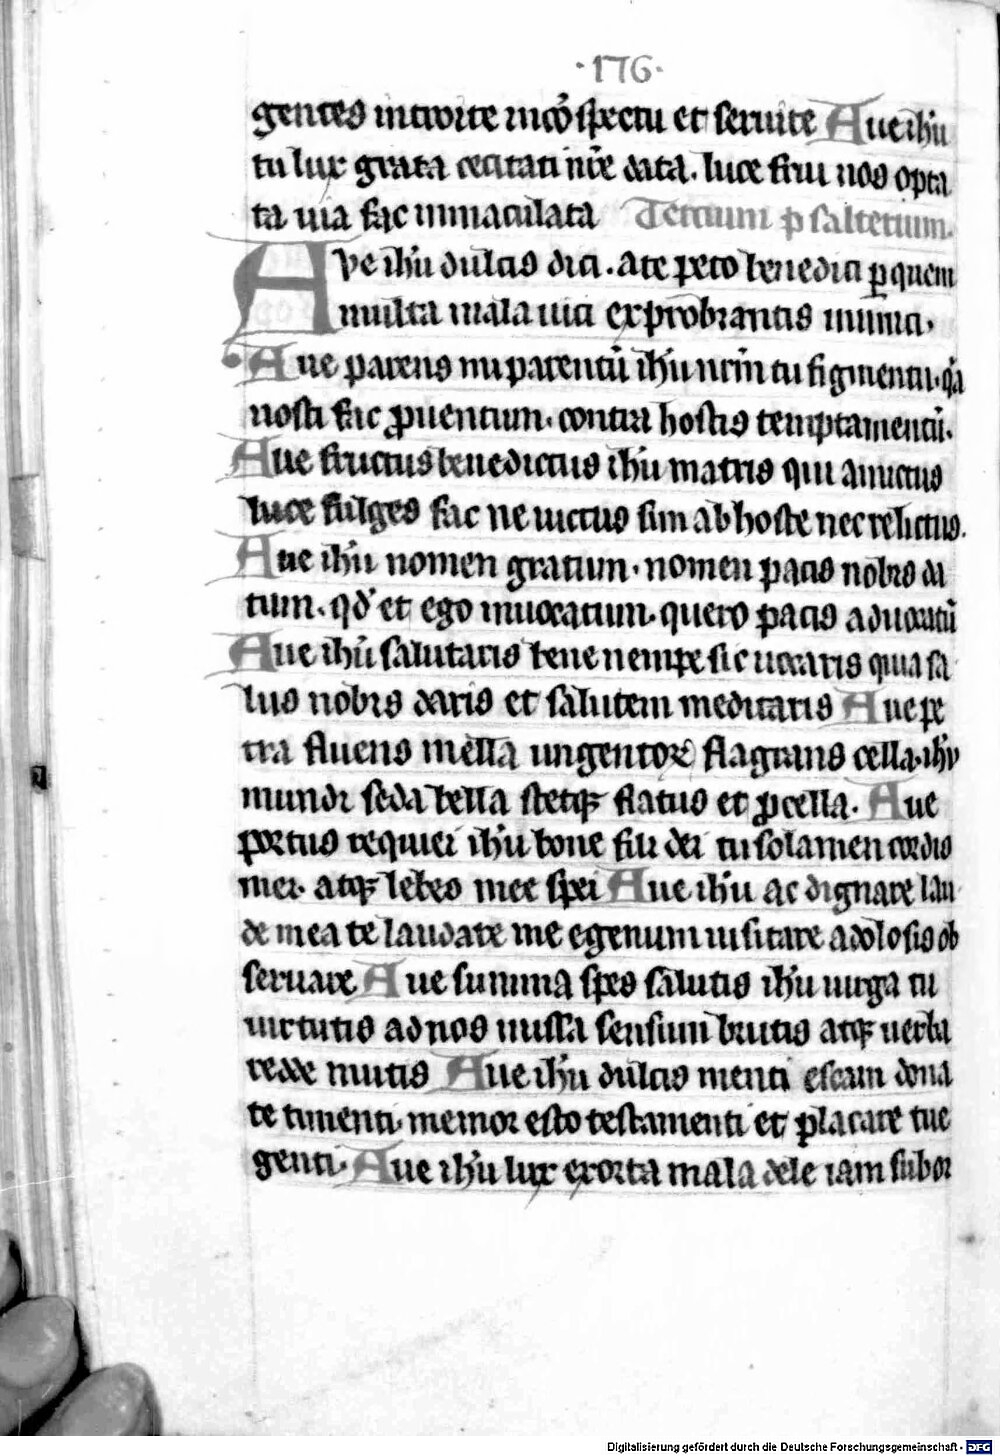 ·176·
gentes introite in cõspectu et seruite Aue ihũ
tu lux grata cecitati nr̃e data. luce frui nos opta
ta uia fac inmaculata Tercium psalterium.
AVe ihũ dulcis dici. a te peto benedici ꝑ quem
multa mala uici exprobrantis inimici.
Aue parens mi parentũ ihũ nr̃m tu figmentũ. q̃a
nosti fac ꝓuentum. contra hostis temptamentũ.
Aue fructus benedictus ihũ matris qui amictus
luce fulges fac ne uictus sim ab hoste nec relictus.
Aue ihũ nomen gratum. nomen pacis nobis da
tum. qd' et ego inuocatum. quero pacis aduocatũ
Aue ihũ salutaris bene nempe sic uocaris quia sa
lus nobis daris et salutem meditaris Aue pe
tra fluens mella ungentoꝝ flagrans cella. ihũ
mundi seda bella stetqꝫ flatus et ꝓcella. Aue
portus requiei ihũ bone fili dei tu solamen cordis
mei. atqꝫ lebes mee spei Aue ihũ ac dignare lau
de mea te laudare me egenum uisitare a dolosis ob
seruare Aue summa spes salutis ihũ uirga tu
uirtutis ad nos missa sensum brutis atqꝫ uerba
redde mutis Aue ihũ dulcis menti escam dona
te timenti. memor esto testamenti et placare tue
genti. Aue ihũ lux exorta mala dele iam subor
Digitalisierung gefördert durch die Deutsche Forschungsgemeinschaft - DFG